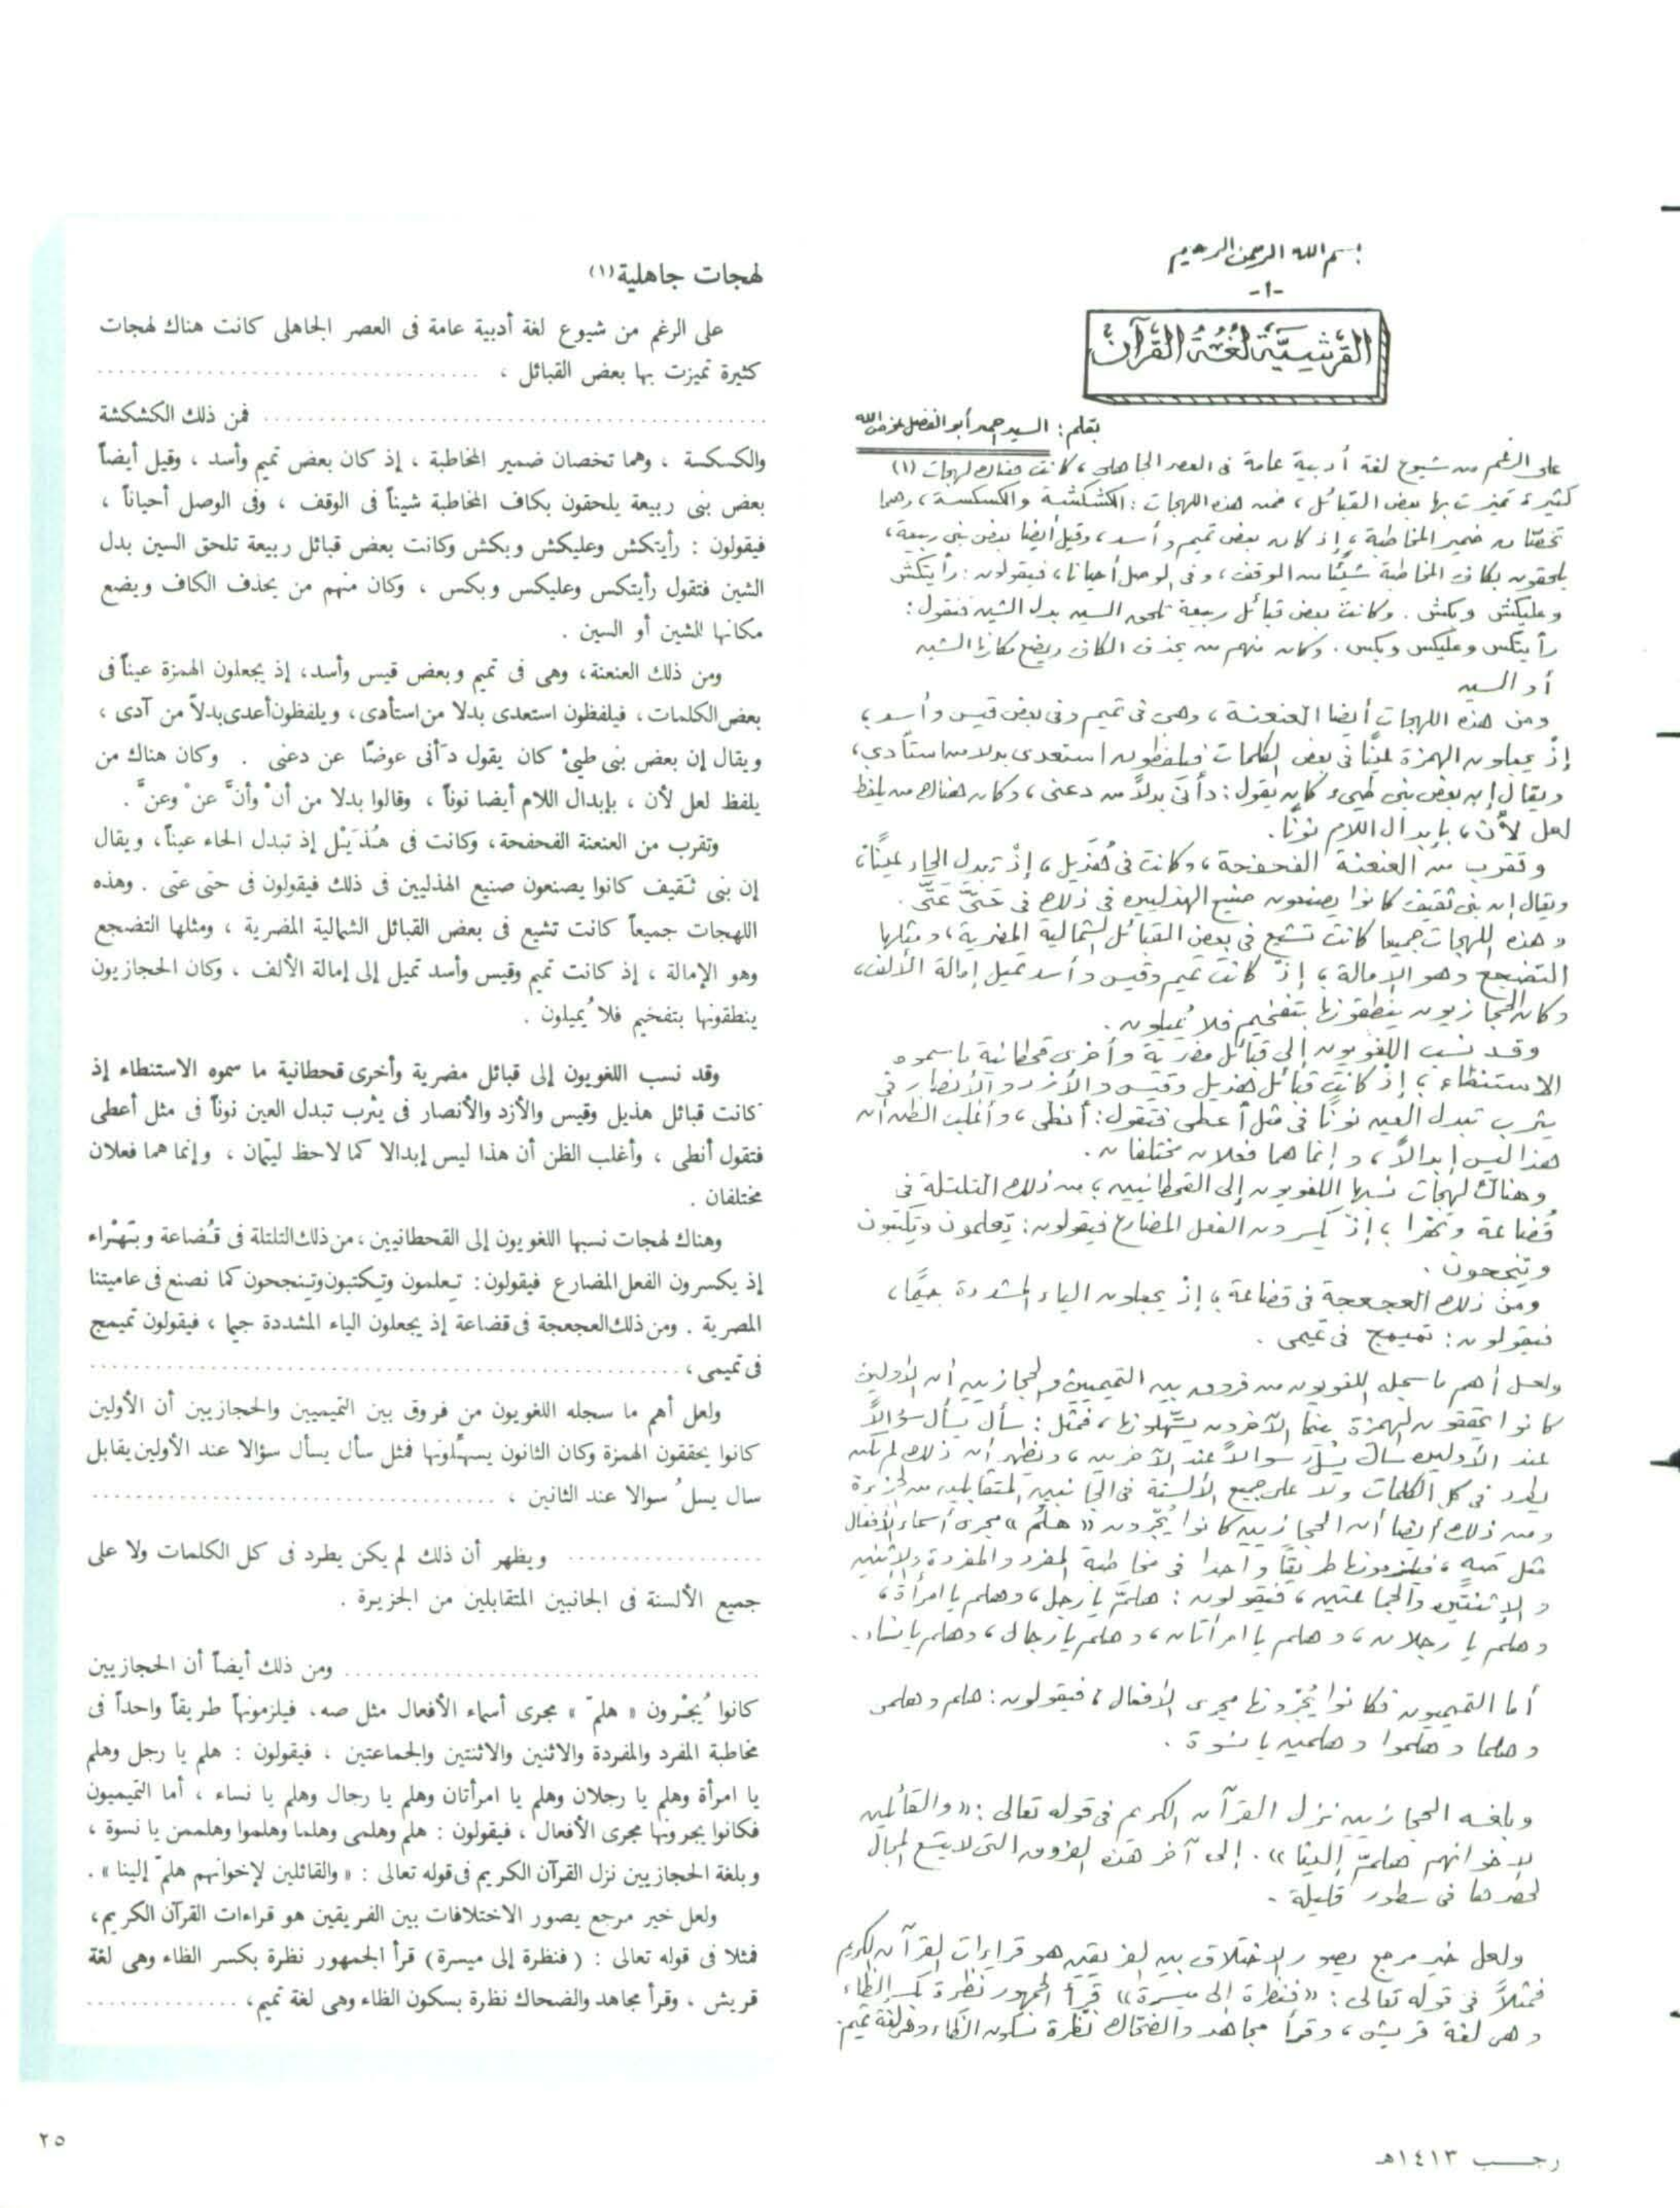 بسم الله الرحمن الرحيم
-١-
القرشيَّة لغة القرآن
بقلم: السيد احمد أبو الفضل عوض الله
على الرغم من شيوع لغة أدبية عامة فى العصر الجاهلى، كانت هناك لهجات (١)
كثيرة تميزت بها بعض القبائل، فمن هذه اللهجات: الكشكشة والكسكسة، وهما
تخصّان ضمير المخاطبة، إذ كان بعض تميم وأسد، وقيل أيضا بعض بنى ربيعة،
يلحقون بكاف المخاطبة شيئًا من الوقف، وفى الوصل أحيانا، فيقولون: رأيتكش
وعليكش وبكش. وكانت بعض قبائل ربيعة تلحق السين بدل الشين فتقول:
رأيتكس وعليكس وبكس. وكان منهم من يحذف الكاف ويضع مكانها الشين
أو السين
ومن هذه اللهجات أيضا العنعنة، وهى فى تميم وفى بعض قيس وأسد،
إذْ يجعلون الهمزة عينًا فى بعض الكلمات فيلفظون استعدى بدلا من استأدى،
ويقال إن بعض بنى طيىء كان يقول: دأنى بدلاً من دعنى، وكان هناك من يلفظ
لعل لأن، بإبدال اللام نونًا.
وتقرب من العنعنة الفحفحة، وكانت فى هُذَيل، إذْ تبدل الحاء عينًا،
ويقال إن بنى ثقيف كانوا يصنعون صنيع الهذليين فى ذلك فى حَتَّى عَتَّى.
وهذه اللهجات جميعا كانت تشيع فى بعض القبائل الشمالية المضرية، ومثلها
التضجع وهو الإمالة، إذ كانت تميم وقيس وأسد تميل إمالة الألف،
وكان الحجازيون ينطقونها بتفخيم فلا يُميلون.
وقد نسب اللغويون إلى قبائل مضرية وأخرى قحطانية ما سموه
الاستنطاء، إذْ كانت قبائل هذيل وقيس والأزد والأنصار فى
يثرب تبدل العين نونًا فى مثل أعطى فتقول: أنطى، وأغلب الظن أن
هذا ليس إبدالاً، وإنما هما فعلان مختلفان.
وهناك لهجات نسبها اللغويون إلى القحطانيين، من ذلك التلتلة فى
قُضاعة وبَهْرا، إذْ يكسرون الفعل المضارع فيقولون: تِعلمون وتِكتبون
وتِنجحون.
ومن ذلك العجعجة فى قضاعة، إذْ يجعلون الياء المشددة جيمًا،
فيقولون: تميمج فى تميمى.
ولعل أهم ما سجله اللغويون من فروق بين التميميين والحجازيين أن الأولين
كانوا يحققون الهمزة بينما الآخرون يسَهّلونها، فمثل: سأل يسأل سؤالاً
عند الأولين سال يسل سوالاً عند الآخرين، ويظهر أن ذلك لم يكن
يطرد فى كل الكلمات ولا على جميع الألسنة فى الجانبين المتقابلين من الجزيرة
ومن ذلك أيضا أن الحجازيين كانوا يُجرون «هلمّ» مجرى أسماء الأفعال
مثل صه، فيلزمونها طريقًا واحدا فى مخاطبة المفرد والمفردة والإثنين
والإثنتين والجماعتين، فيقولون: هلمَّ يا رجل، وهلم يا امرأة،
وهلم يا رجلان، وهلم يا امرأتان، وهلم يا رجال، وهلم يا نساء.
أما التميميون فكانوا يُجرونها مجرى الأفعال، فيقولون: هلم وهلمى
وهلما وهلموا وهلمين يا نسوة.
وبلغة الحجازيين نزل القرآن الكريم فى قوله تعالى: «والقائلين
لإخوانهم هلمّ إلينا». إلى آخر هذه الفروق التى لا يتسع المجال
لحصرها فى سطور قليلة.
ولعل خير مرجع يصور الإختلاف بين الفريقين هو قراءات القرآن الكريم
فمثلاً فى قوله تعالى: «فنظرة إلى ميسرة» قرأ الجمهور نظرة بكسر الظاء
وهى لغة قريش، وقرأ مجاهد والضحاك نظرة بسكون الظاء وهى لغة تميم.
رجب ١٤١٣هـ
لهجات جاهلية (١)
على الرغم من شيوع لغة أدبية عامة فى العصر الجاهلى كانت هناك لهجات
كثيرة تميزت بها بعض القبائل ، ....................
.................... فمن ذلك الكشكشة
والكسكسة ، وهما تخصان ضمير المخاطبة ، إذ كان بعض تميم وأسد ، وقيل أيضاً
بعض بنى ربيعة يلحقون بكاف المخاطبة شيناً فى الوقف ، وفى الوصل أحياناً ،
فيقولون : رأيتكش وعليكش وبكش وكانت بعض قبائل ربيعة تلحق السين بدل
الشين فتقول رأيتكس وعليكس وبكس ، وكان منهم من يحذف الكاف ويضع
مكانها الشين أو السين .
ومن ذلك العنعنة، وهى فى تميم وبعض قيس وأسد، إذ يجعلون الهمزة عيناً فى
بعض الكلمات، فيلفظون استعدى بدلا من استأدى، ويلفظون أعدى بدلاً من آدى ،
ويقال إن بعض بنى طيئ كان يقول دَأنى عوضًا عن دعنى . وكان هناك من
يلفظ لعل لأن ، بإبدال اللام أيضا نوناً ، وقالوا بدلا من أنْ وأنَّ عنْ وعنَّ .
وتقرب من العنعنة الفحفحة، وكانت فى هُذَيْل إذ تبدل الحاء عيناً، ويقال
إن بنى ثَقيف كانوا يصنعون صنيع الهذليين فى ذلك فيقولون فى حتى عتى . وهذه
اللهجات جميعاً كانت تشيع فى بعض القبائل الشمالية المضرية ، ومثلها التضجع
وهو الإمالة ، إذ كانت تميم وقيس وأسد تميل إلى إمالة الألف ، وكان الحجازيون
ينطقونها بتفخيم فلا يُميلون .
وقد نسب اللغويون إلى قبائل مضرية وأخرى قحطانية ما سموه الاستنطاء إذ
كانت قبائل هذيل وقيس والأزد والأنصار فى يثرب تبدل العين نوناً فى مثل أعطى
فتقول أنطى ، وأغلب الظن أن هذا ليس إبدالا كما لاحظ ليتمان ، وإنما هما فعلان
مختلفان .
وهناك لهجات نسبها اللغويون إلى القحطانيين، من ذلك التلتلة فى قُضاعة وبَهْراء
إذ يكسرون الفعل المضارع فيقولون: تِعلمون وتِكتبون وتِنجحون كما نصنع فى عاميتنا
المصرية . ومن ذلك العجعجة فى قضاعة إذ يجعلون الياء المشددة جيما ، فيقولون تميمج
فى تميمى، ....................
ولعل أهم ما سجله اللغويون من فروق بين التميميين والحجازيين أن الأولين
كانوا يحققون الهمزة وكان الثانون يسهِّلونها فمثل سأل يسأل سؤالا عند الأولين يقابل
سال يسلُ سوالا عند الثانين ، ....................
.................... ويظهر أن ذلك لم يكن يطرد فى كل الكلمات ولا على
جميع الألسنة فى الجانبين المتقابلين من الجزيرة .
.................... ومن ذلك أيضاً أن الحجازيين
كانوا يُجْرون « هلمّ » مجرى أسماء الأفعال مثل صه، فيلزمونها طريقاً واحداً فى
مخاطبة المفرد والمفردة والاثنين والاثنتين والجماعتين ، فيقولون : هلم يا رجل وهلم
يا امرأة وهلم يا رجلان وهلم يا امرأتان وهلم يا رجال وهلم يا نساء ، أما التميميون
فكانوا يجرونها مجرى الأفعال ، فيقولون : هلم وهلمى وهلما وهلموا وهلممن يا نسوة ،
وبلغة الحجازيين نزل القرآن الكريم فى قوله تعالى : « والقائلين لإخوانهم هلمّ إلينا » .
ولعل خير مرجع يصور الاختلافات بين الفريقين هو قراءات القرآن الكريم،
فمثلا فى قوله تعالى : ( فنظرة إلى ميسرة ) قرأ الجمهور نظرة بكسر الظاء وهى لغة
قريش ، وقرأ مجاهد والضحاك نظرة بسكون الظاء وهى لغة تميم، ..............
٢٥